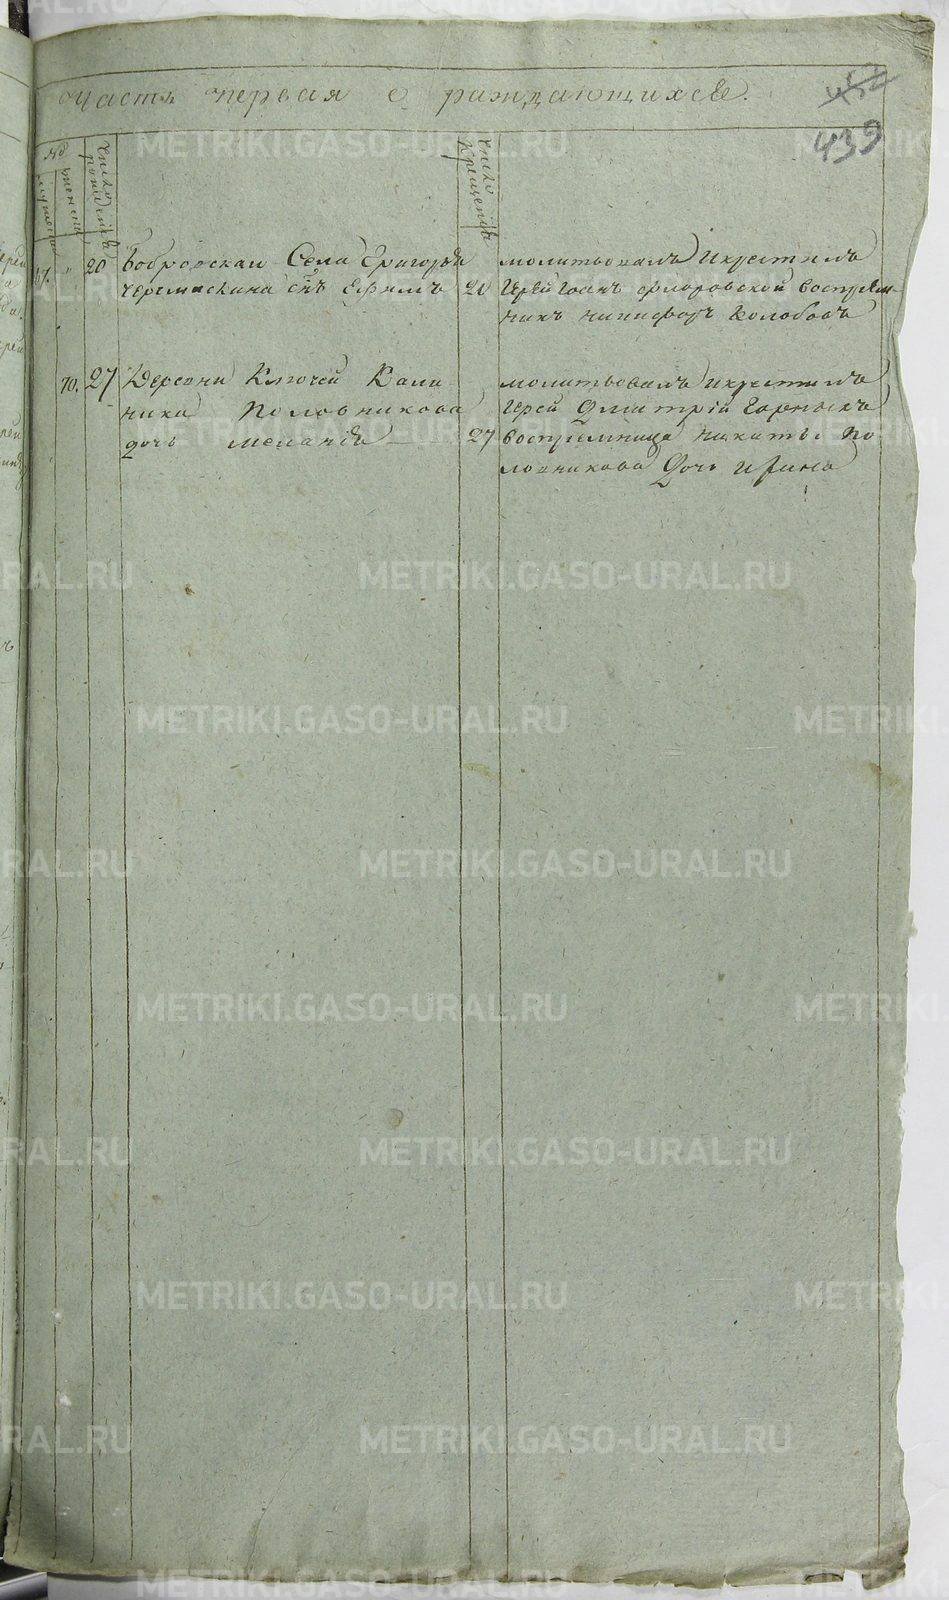 часть первая о раждающихся.
439
№
мужеска
женска
число рождения
число крещения
67. " 20 Бобровскаи Села Григорья
Черемискина снъ Ефимъ 20
молитвовалъ и крестилъ
Иерей Иоанъ Флоровской восприем-
никъ никифоръ Колобовъ
70. 27 Деревни Ключей Кали
ника Половникова
дочь меланія 27
молитвовалъ и крестилъ
Иерей Дмитрій
восприемница никиты По
ловникова Дочь ирина
METRIKI.GASO-URAL.RU